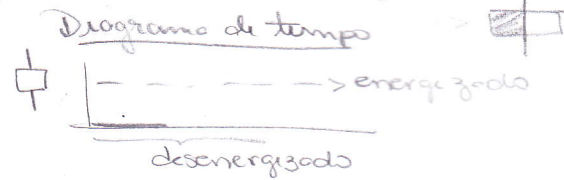 Diagrama de tempo
energizado
desenergizado